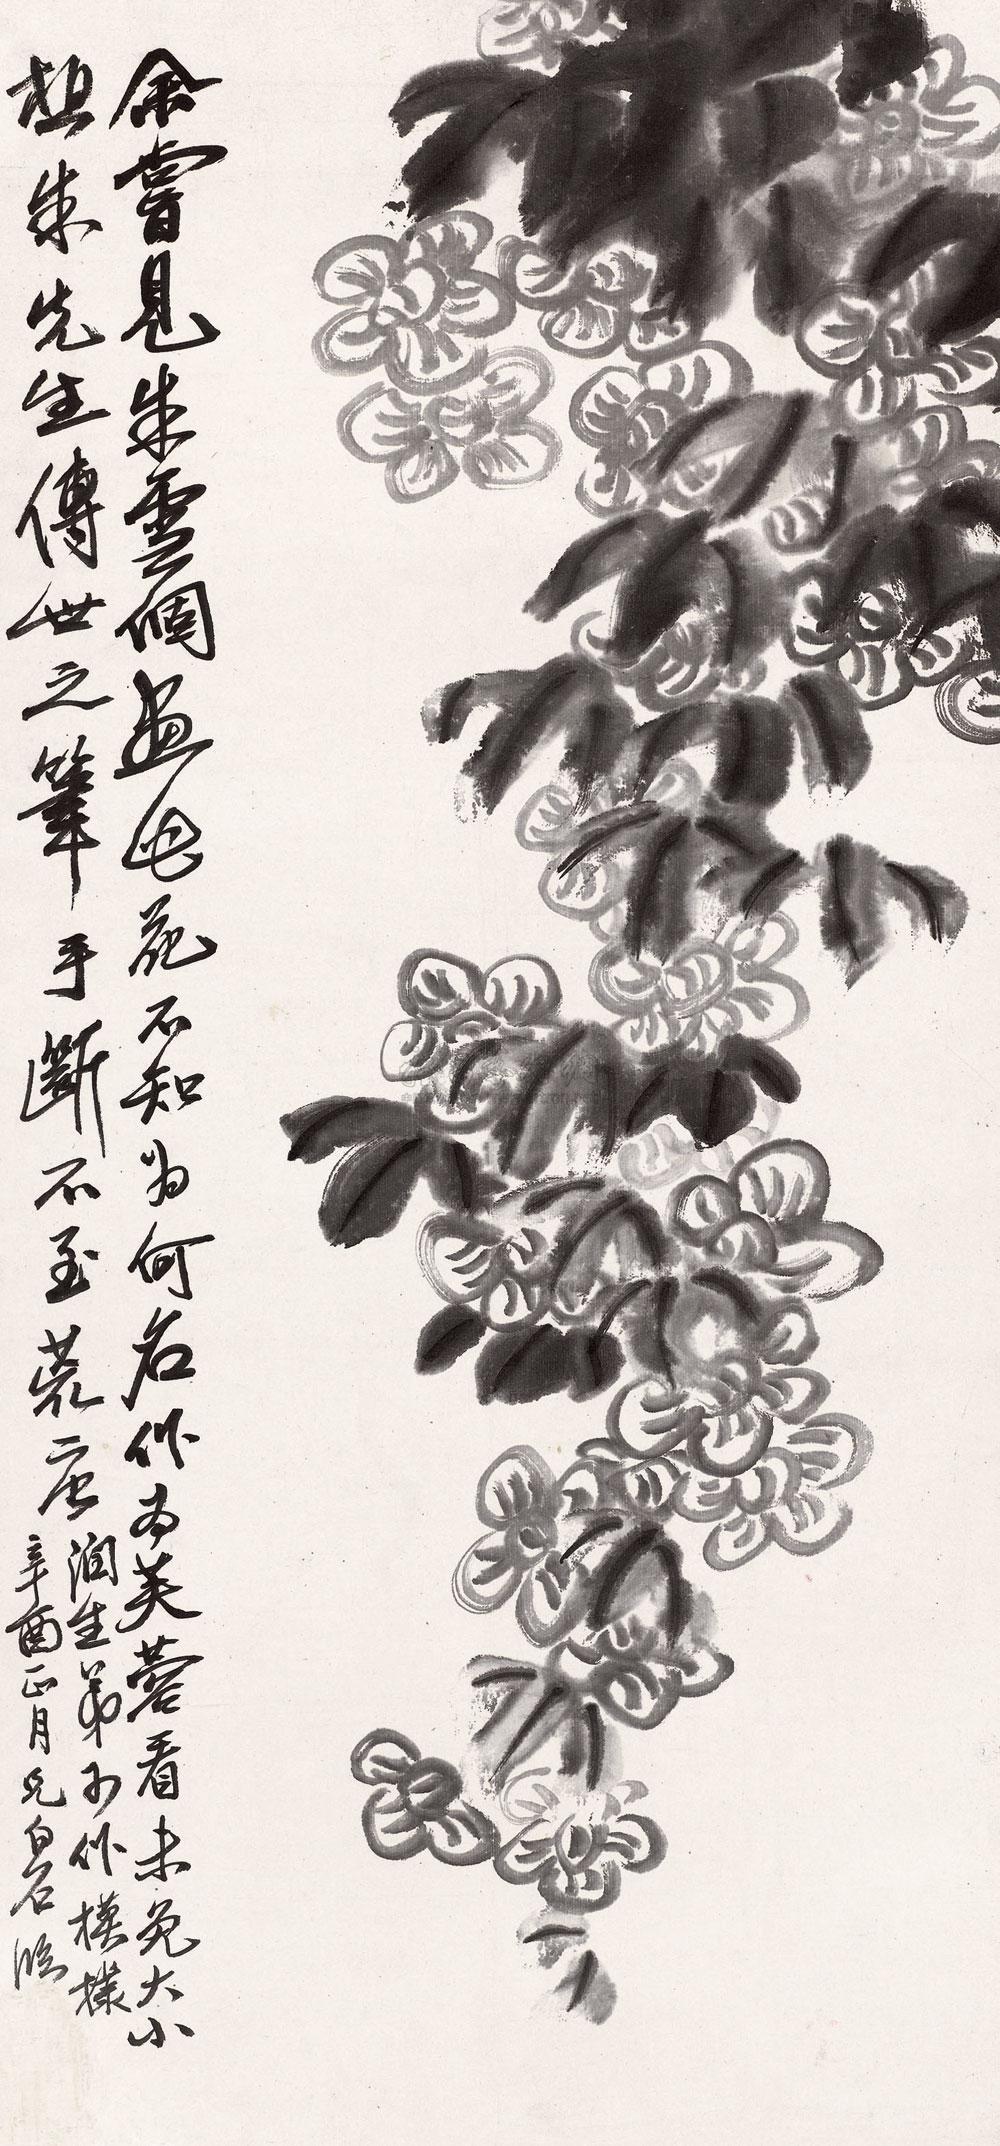 余嘗見朱雪個畫此花不知为何名作为芙蓉看未免大小
想朱先生傳世之筆手斷不至荒唐
潤生弟子作模樣
辛酉正月兄白石臨